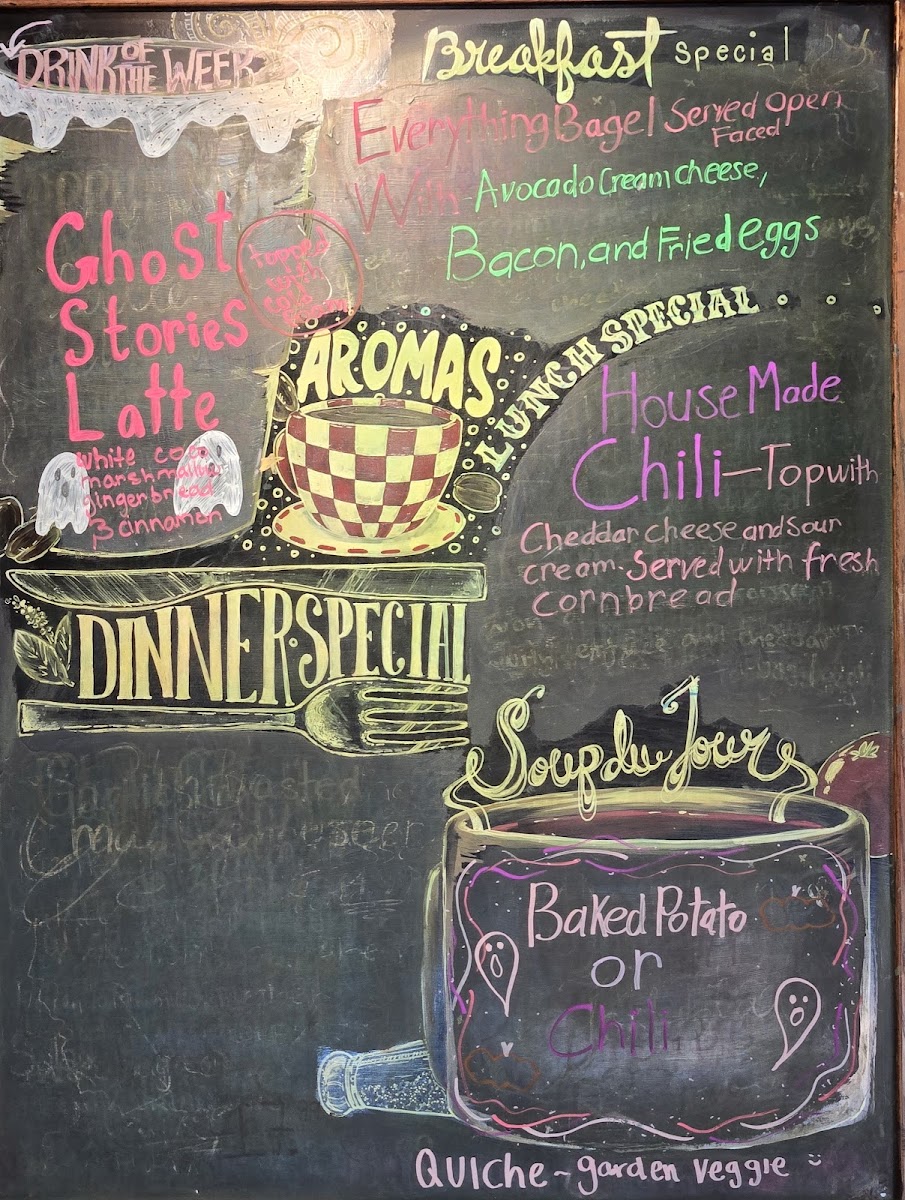 DRINK OF THE WEEK
Ghost
Stories
Latte
topped
with
cold
white coco
marshmallow
gingerbread
& cinnamon
Breakfast special
Everything Bagel Served Open
Faced
With Avocado Cream cheese,
Bacon, and Fried eggs
AROMAS
LUNCH SPECIAL
House Made
Chili - Top with
Cheddar cheese and sour
cream. Served with fresh
cornbread
DINNER SPECIAL
Soup du Jour
Baked Potato
or
Chili
QUICHE ~ garden veggie